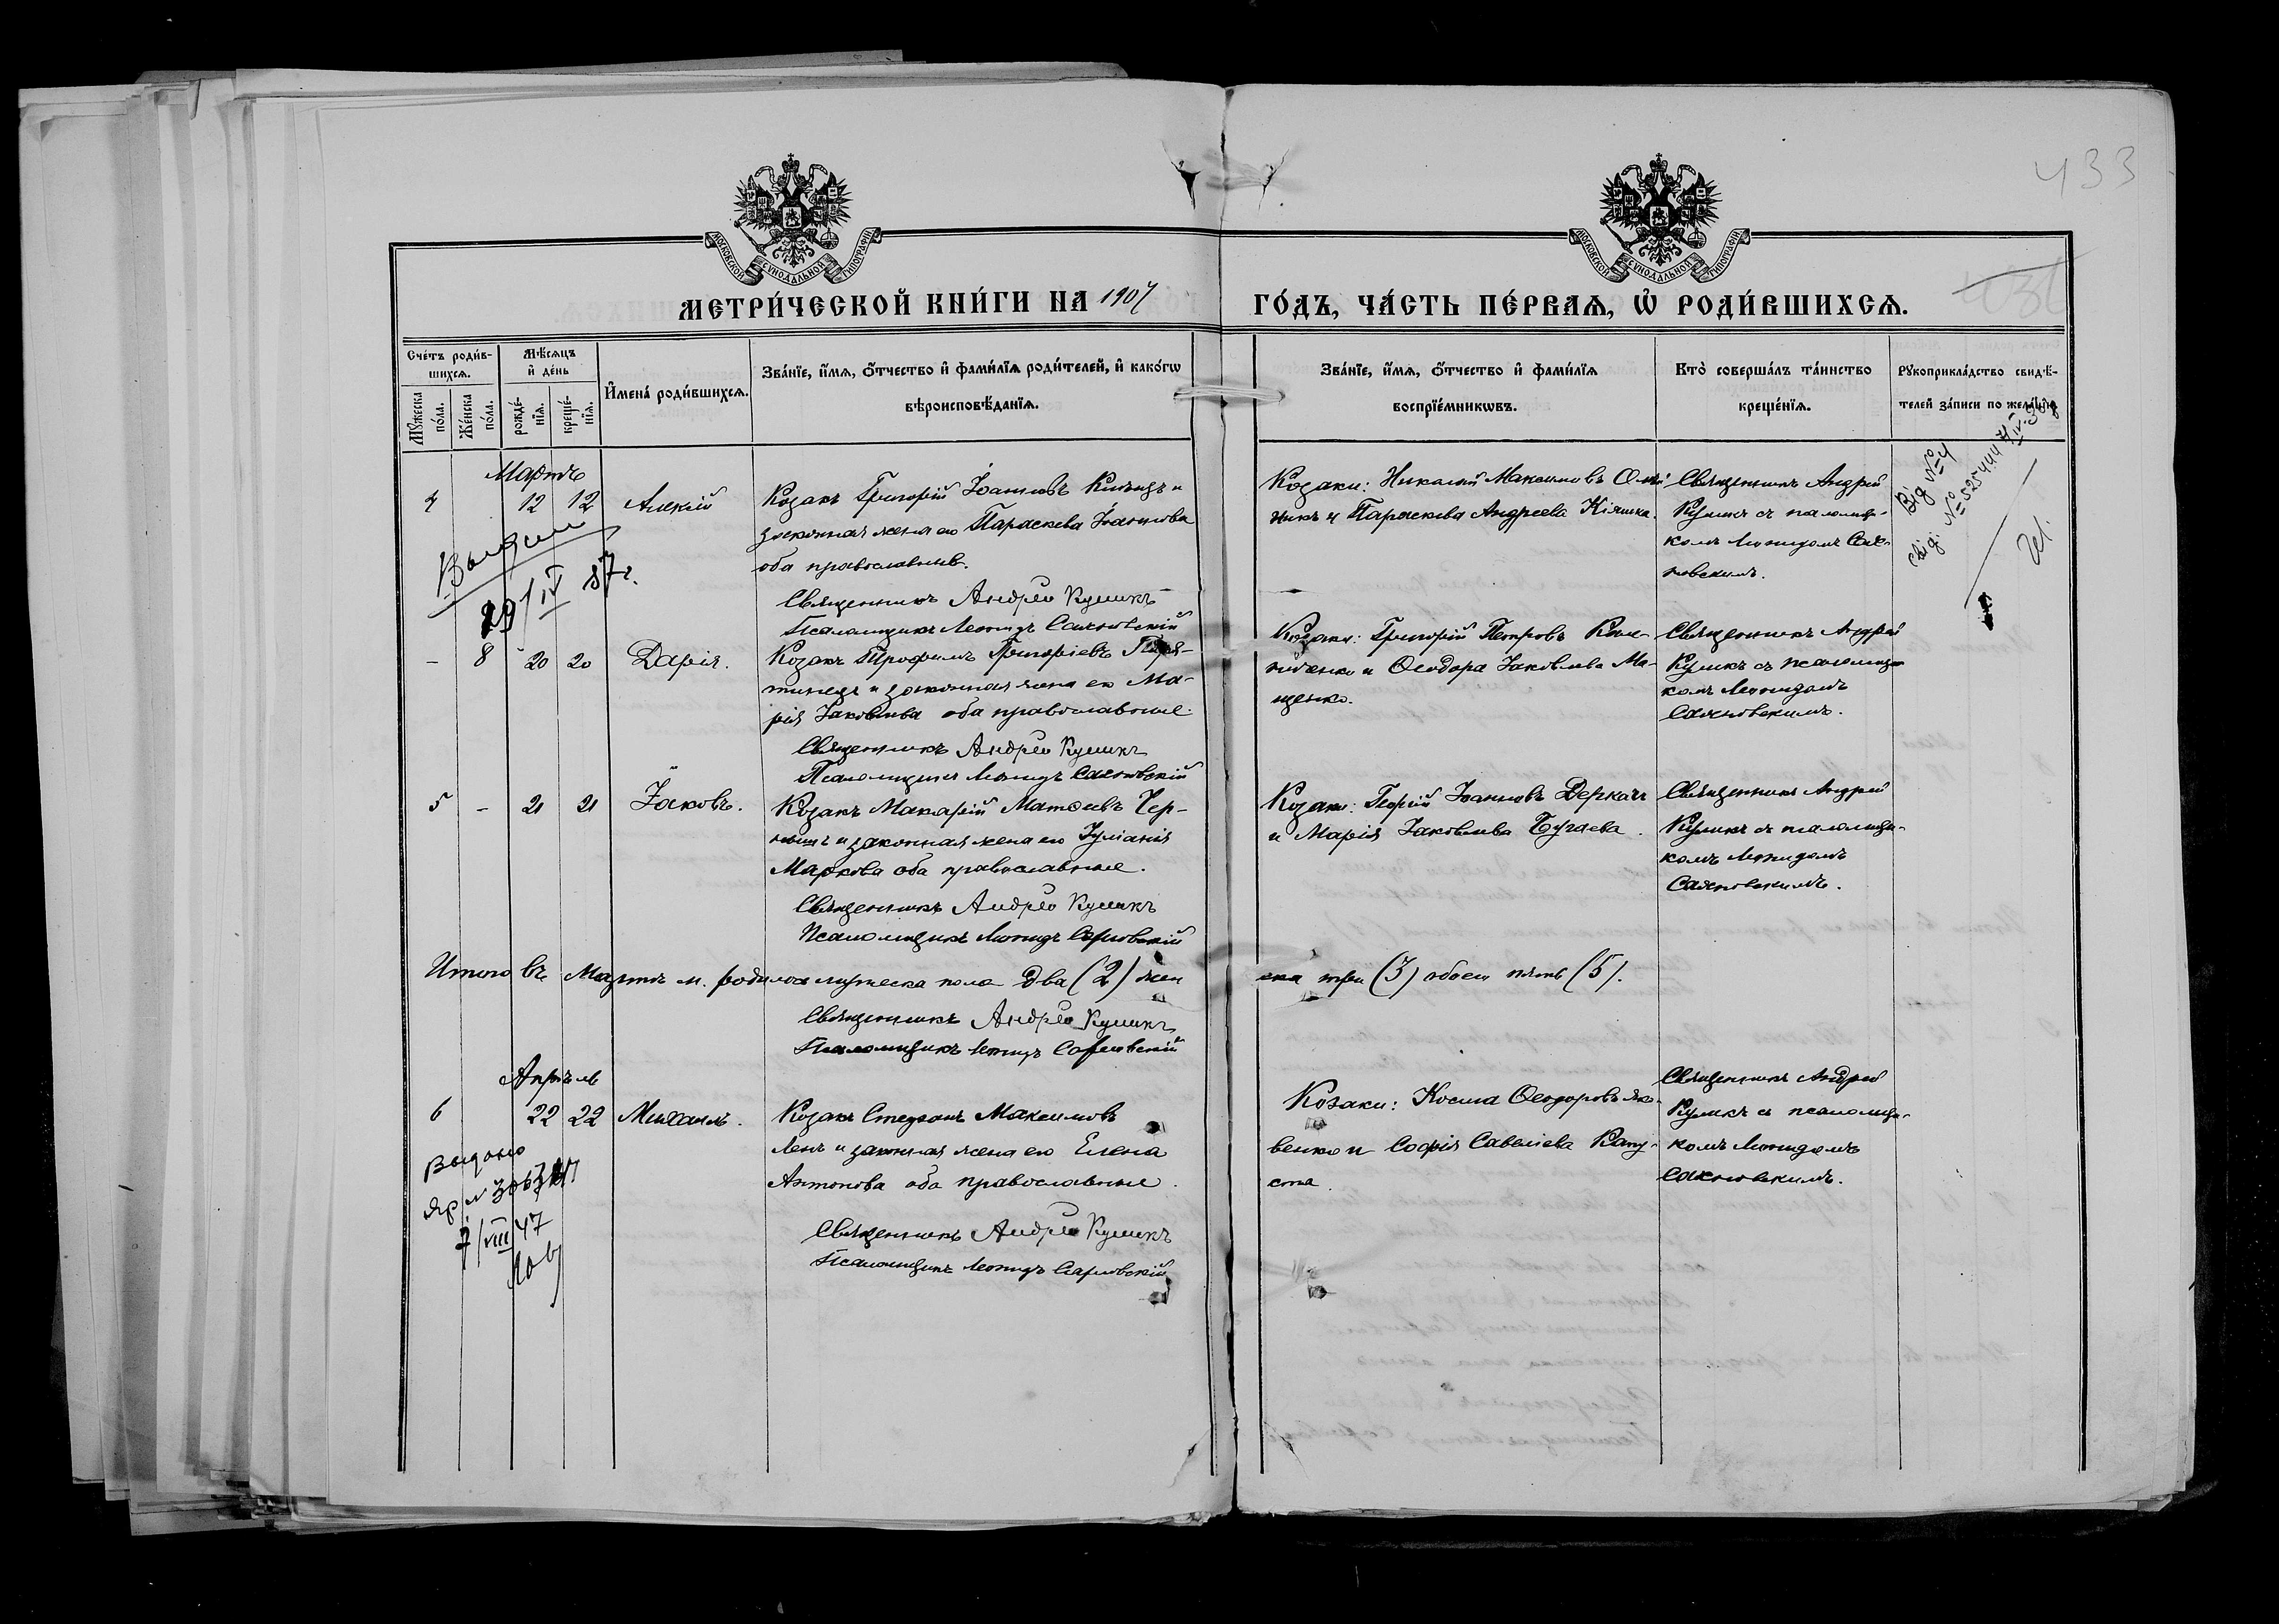 433
МОСКОВСКОЙ СѴНОДАЛЬНОЙ ТИПОГРАФІИ
МОСКОВСКОЙ СѴНОДАЛЬНОЙ ТИПОГРАФІИ
МЕТРИ́ЧЕСКОЙ КНИ́ГИ НА 1907
ГО́ДЪ, ЧА́СТЬ ПЕ́РВАѦ, Ѡ҆ РОДИ́ВШИХСѦ.
Сче́тъ роди́вшихсѧ.
Мꙋ́жеска по́ла.
Же́нска по́ла.
Мѣ́сѧцъ и҆ де́нь
рожде́нїѧ.
креще́нїѧ.
И҆мена̀ роди́вшихсѧ.
Зва́нїе, и҆́мѧ, ѻ҆́тчество и҆ фами́лїѧ роди́телей, и҆ како́гѡ
вѣроисповѣ́данїѧ.
Зва́нїе, и҆́мѧ, ѻ҆́тчество и҆ фами́лїѧ
воспрїе́мникѡвъ.
Кто̀ соверша́лъ та́инство
креще́нїѧ.
Рꙋкоприкла́дство свидѣ́-
телей за́писи по жела́нїю
Мартъ
4 12 12 Алексій
Козакъ Григорій Іоанновъ и
законная жена его Параскева Іоаннова
оба православные.
Священникъ Андрей Куликъ
Псаломщикъ Леонидъ Сахновскій
Козаки: Николай Максимовъ Олій-
никъ и Параскева Андреева Кіяшка.
Священникъ Андрей
Куликъ съ псаломщи-
комъ Леонидомъ Сах-
новскимъ.
29/IV
Від №4
№ 525444
- 8 20 20 Дарія.
Козакъ Трофимъ Григоріевъ Пиря-
тинецъ и законная жена его Ма-
рія Іаковлева оба православные.
Священникъ Андрей Куликъ
Псаломщикъ Леонидъ Сахновскій
Козаки: Григорій Петровъ
и Ѳеодора Іаковлева Ма-
щенко.
Священникъ Андрей
Куликъ съ псаломщи-
комъ Леонидомъ
Сахновскимъ.
5 - 21 21 Іаковъ.
Козакъ Макарій Матѳеевъ Чер-
нышъ и законная жена его Іуліанія
Маркова оба православные.
Священникъ Андрей Куликъ
Псаломщикъ Леонидъ Сахновскій
Козаки: Георгій Іоанновъ Деркачъ
и Марія Іаковлева Бугаева.
Священникъ Андрей
Куликъ съ псаломщи-
комъ Леонидомъ
Сахновскимъ.
Итого въ Мартѣ м. родилось мужеска пола два (2) жен
ска три (3) обоего пять (5).
Священникъ Андрей Куликъ
Псаломщикъ Леонидъ Сахновскій
Апрѣль
6 22 22 Михаилъ.
Козакъ Стефанъ Максимовъ
Ленъ и законная жена его Елена
Антонова оба православные.
Священникъ Андрей Куликъ
Псаломщикъ Леонидъ Сахновскій
Козаки: Косма Ѳеодоровъ Яко-
венко и Софія Савеліева Капу-
ста.
Священникъ Андрей
Куликъ съ псаломщи-
комъ Леонидомъ
Сахновскимъ.
Выдано
7/VIII 47